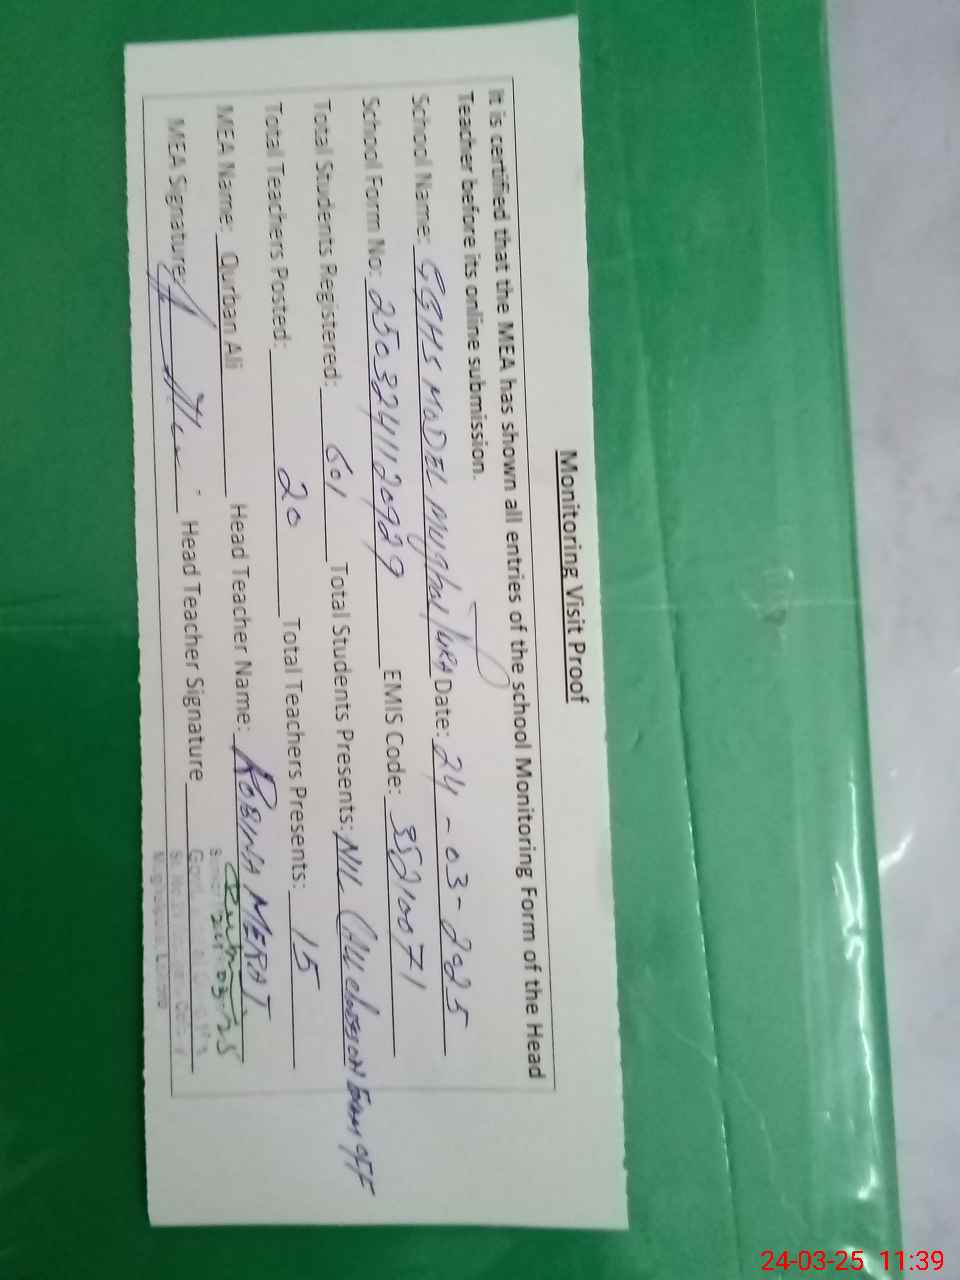 Monitoring Visit Proof
It is certified that the MEA has shown all entries of the school Monitoring Form of the Head
Teacher before its online submission.
School Name: GGHS MODEL Mughal PURA Date: 24-03-2025
School Form No: 25032411120929 EMIS Code: 35210071
Total Students Registered: 601 Total Students Presents: NIL (All classes on Exam OFF
Total Teachers Posted: 20 Total Teachers Presents: 15
MEA Name: Qurban Ali Head Teacher Name: ROBINA MERAT
MEA Signature: Head Teacher Signature
24-03-25 11:39